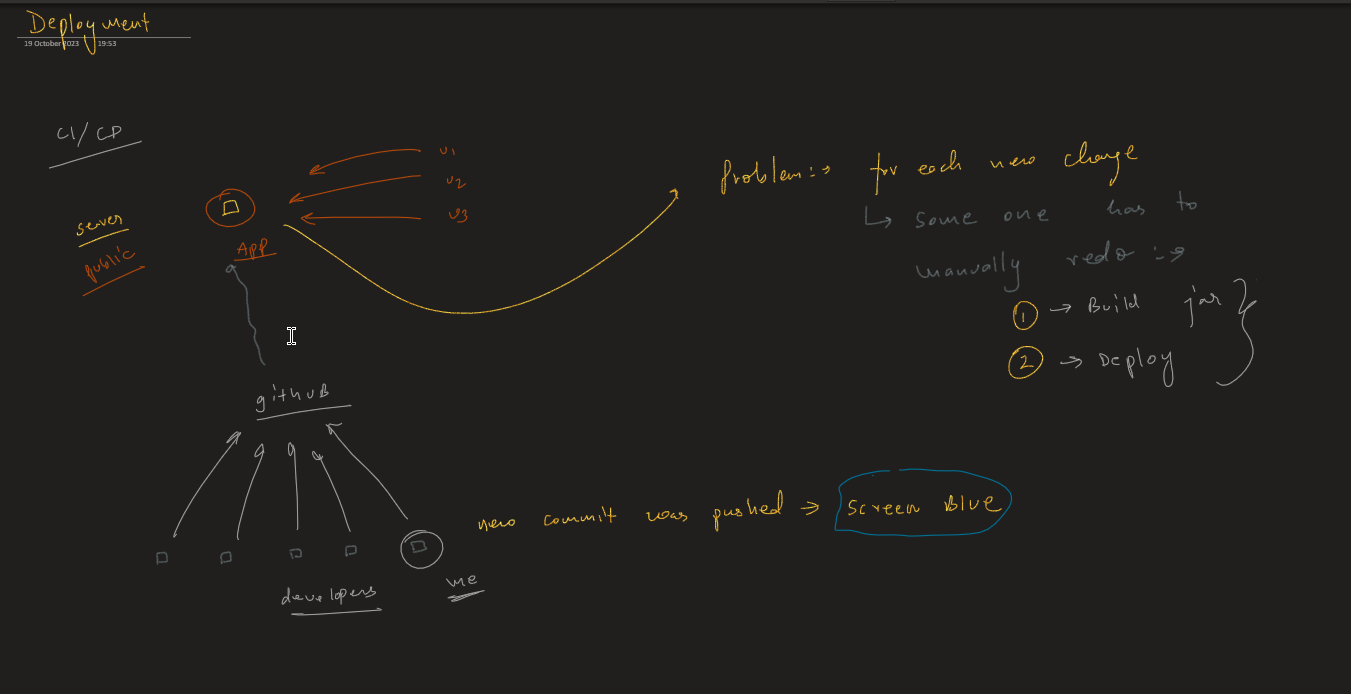 Deployment
19 October 2023 19:53
CI/CD
server
public
App
v1
v2
v3
Problem:→ for each new change
↳ some one has to
manually redo :→
1 → Build jar
2 → Deploy
github
new commit was pushed → screen Blue
developers
me